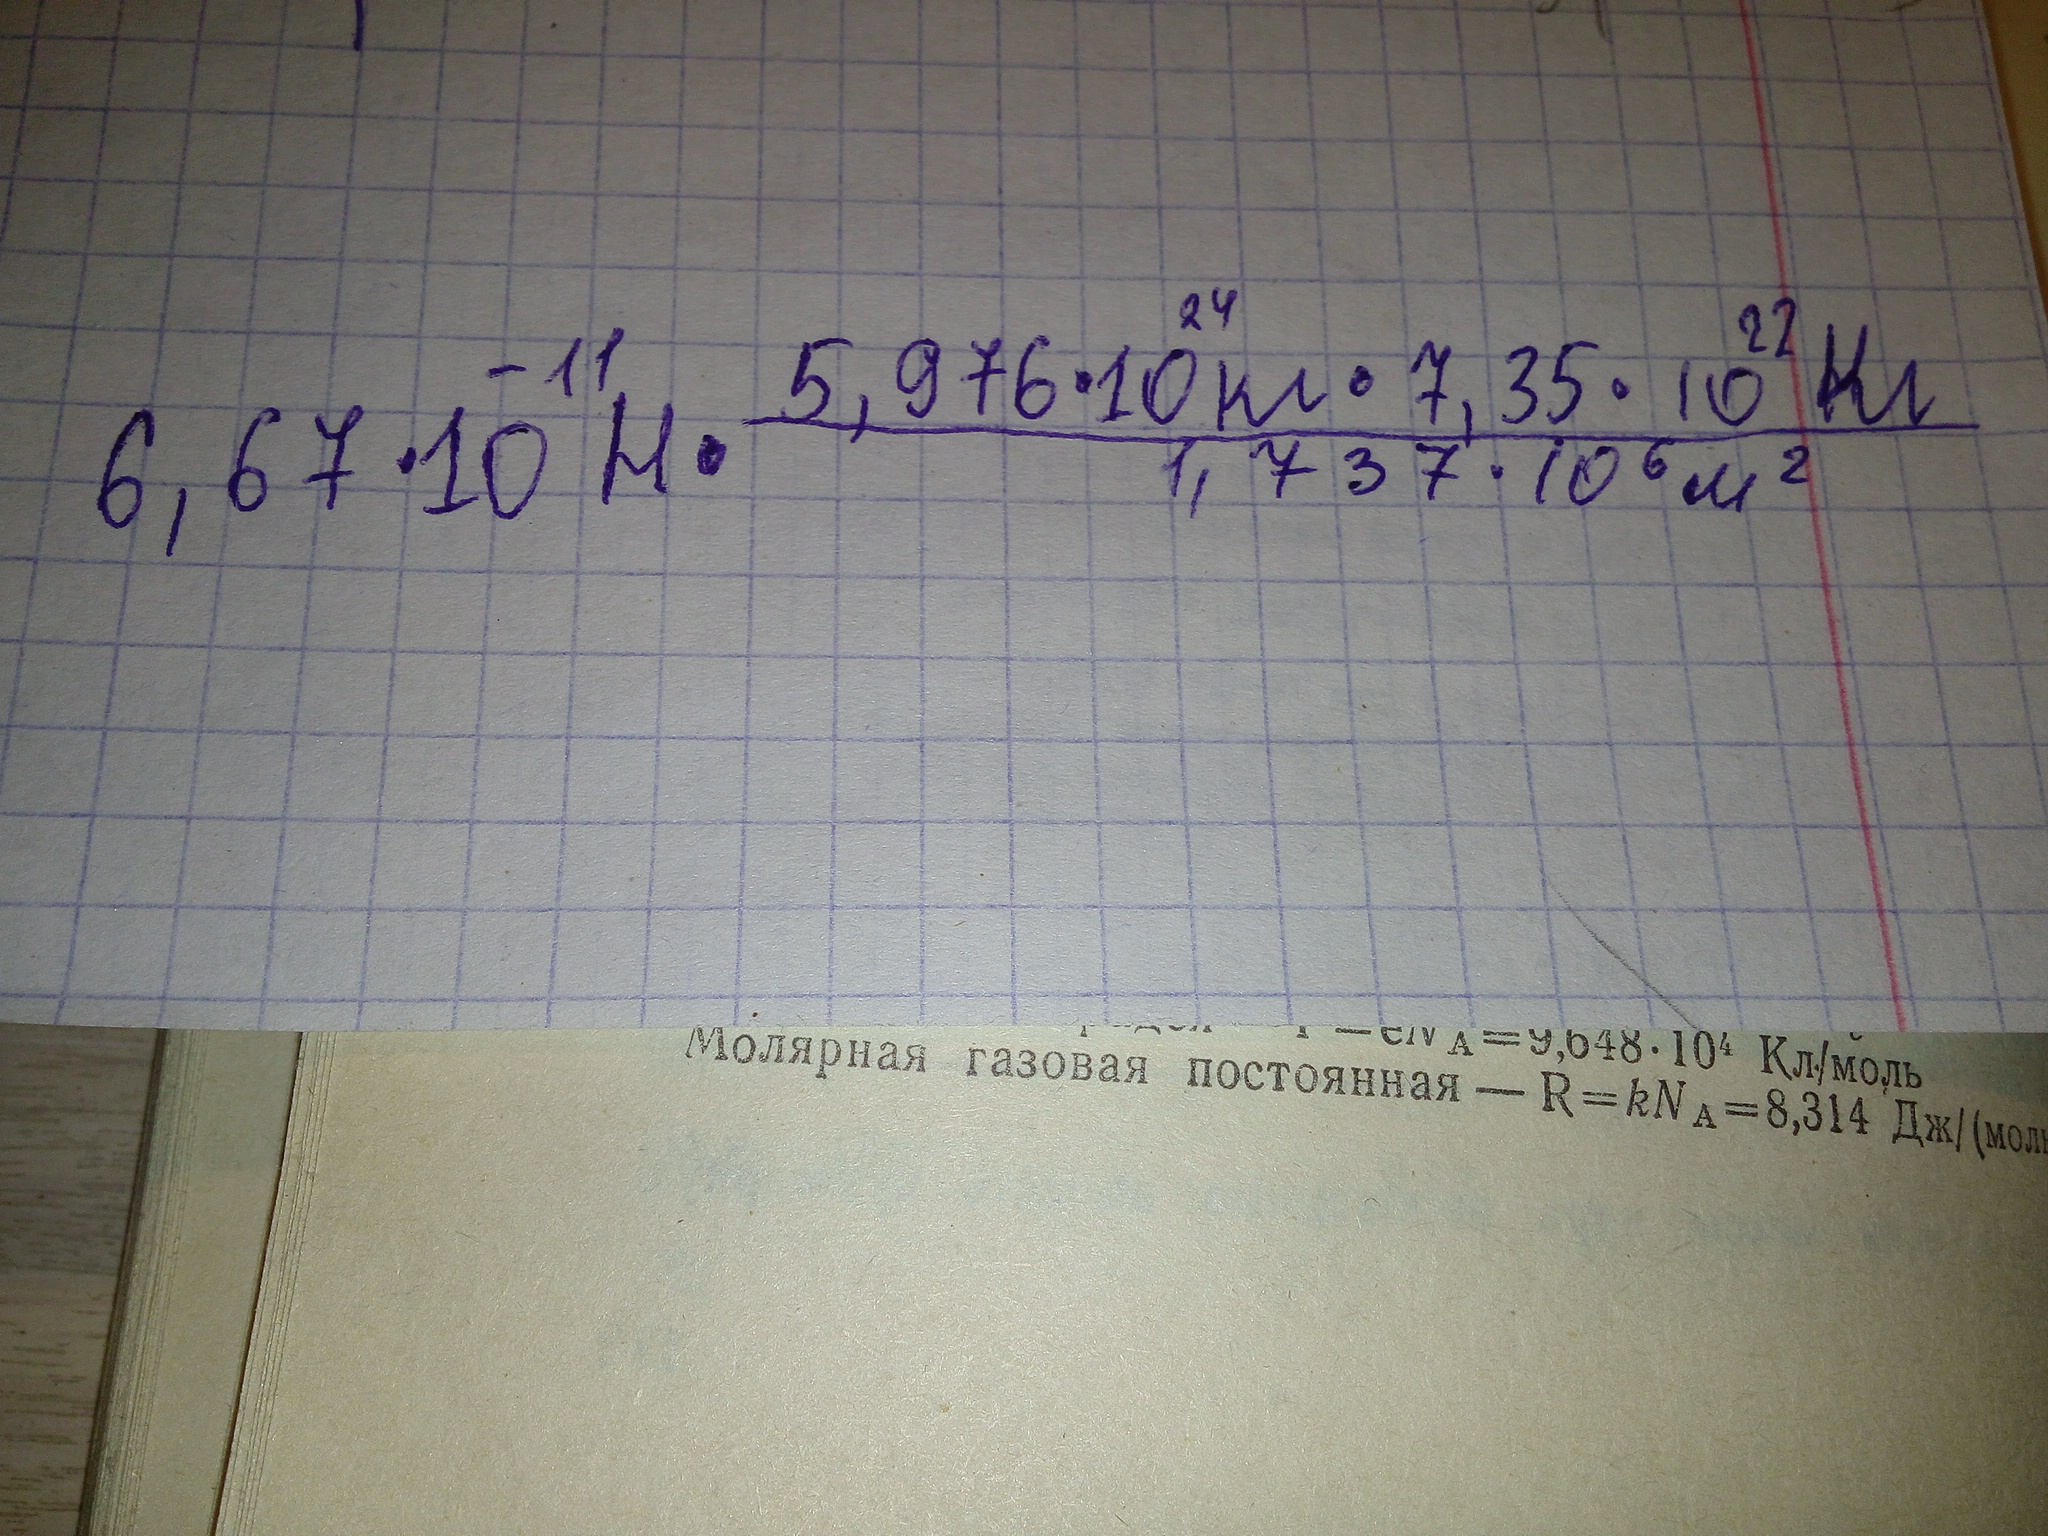 6,67·10⁻¹¹ Н · (5,976·10²⁴ кг · 7,35·10²² кг) / (1,737·10⁶ м²)
=eN_A=9,648·10⁴ Кл/моль
Молярная газовая постоянная — R=kN_A=8,314 Дж/(моль